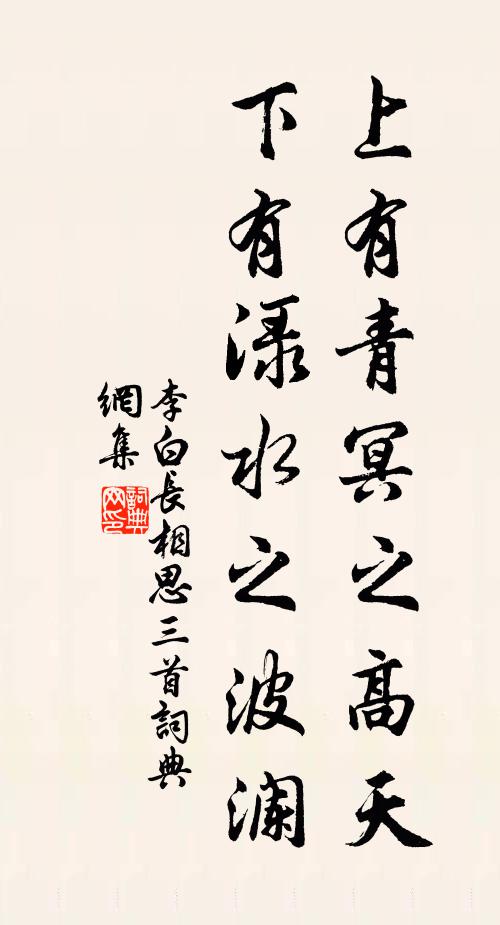 上有青冥之高天
下有渌水之波澜
李白長相思三首詞典
網集
詞典
网印